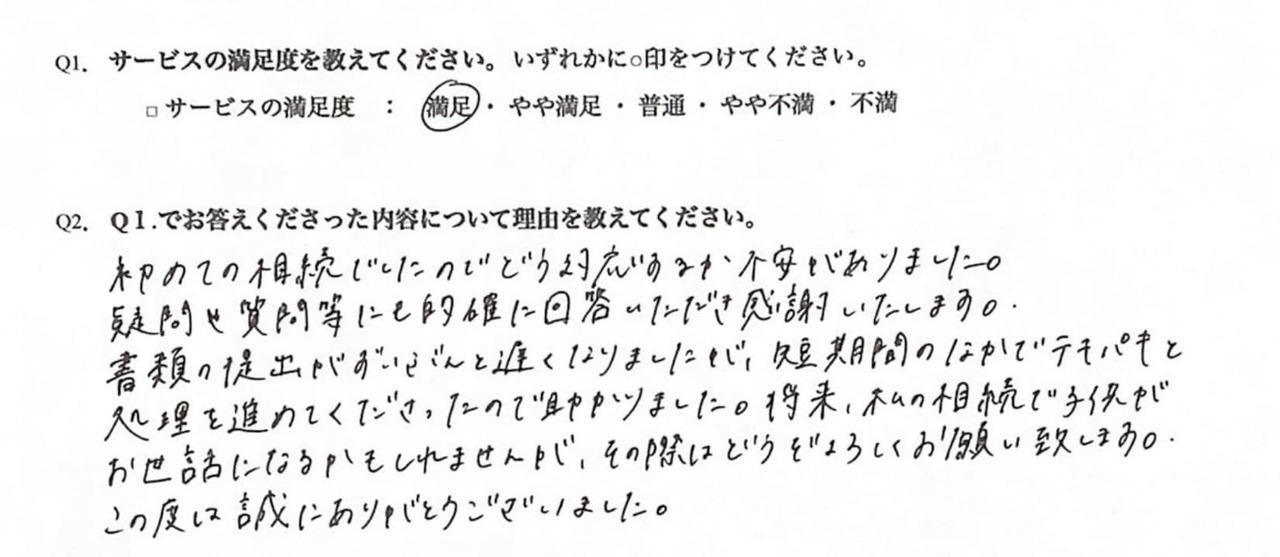 Q1. サービスの満足度を教えてください。いずれかに○印をつけてください。
□ サービスの満足度 : 満足・やや満足・普通・やや不満・不満
Q2. Q1.でお答えくださった内容について理由を教えてください。
初めての相続でしたのでどう対応するか不安がありました。
疑問や質問等にも的確に回答いただき感謝いたします。
書類の提出がずいぶんと遅くなりましたが、短期間のなかでテキパキと
処理を進めてくださったので助かりました。将来、私の相続で子供が
お世話になるかもしれませんが、その際はどうぞよろしくお願い致します。
この度は誠にありがとうございました。